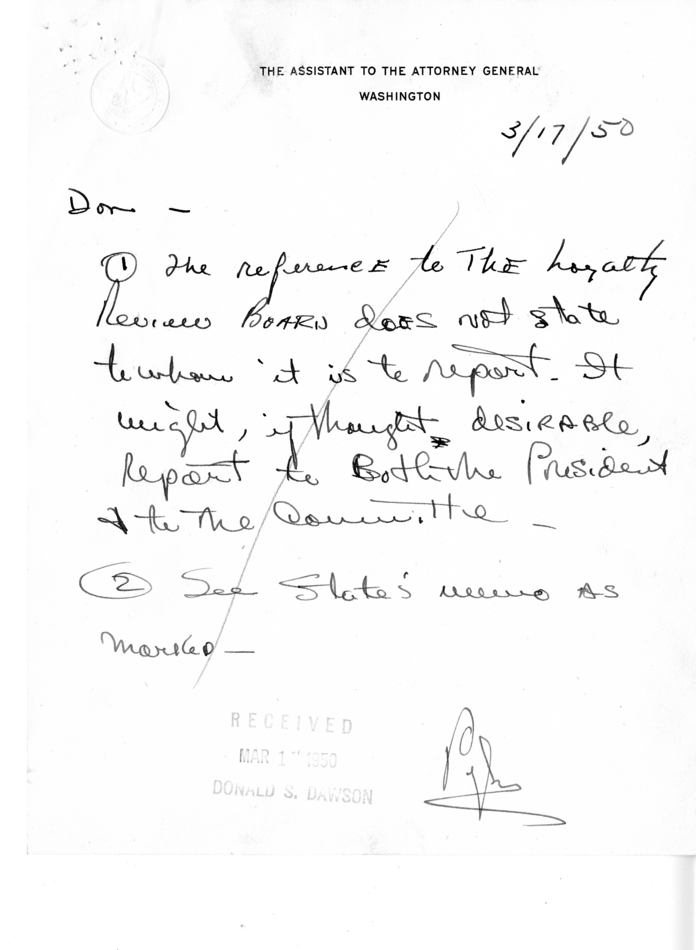 THE ASSISTANT TO THE ATTORNEY GENERAL
WASHINGTON
3/17/50
Don —
① The reference to The Loyalty
Review Board does not state
to whom it is to report. It
might, if thought desirable,
Report to Both the President
& to The Committee —
② See State's memo as
marked —
RECEIVED
MAR 1 1950
DONALD S. DAWSON